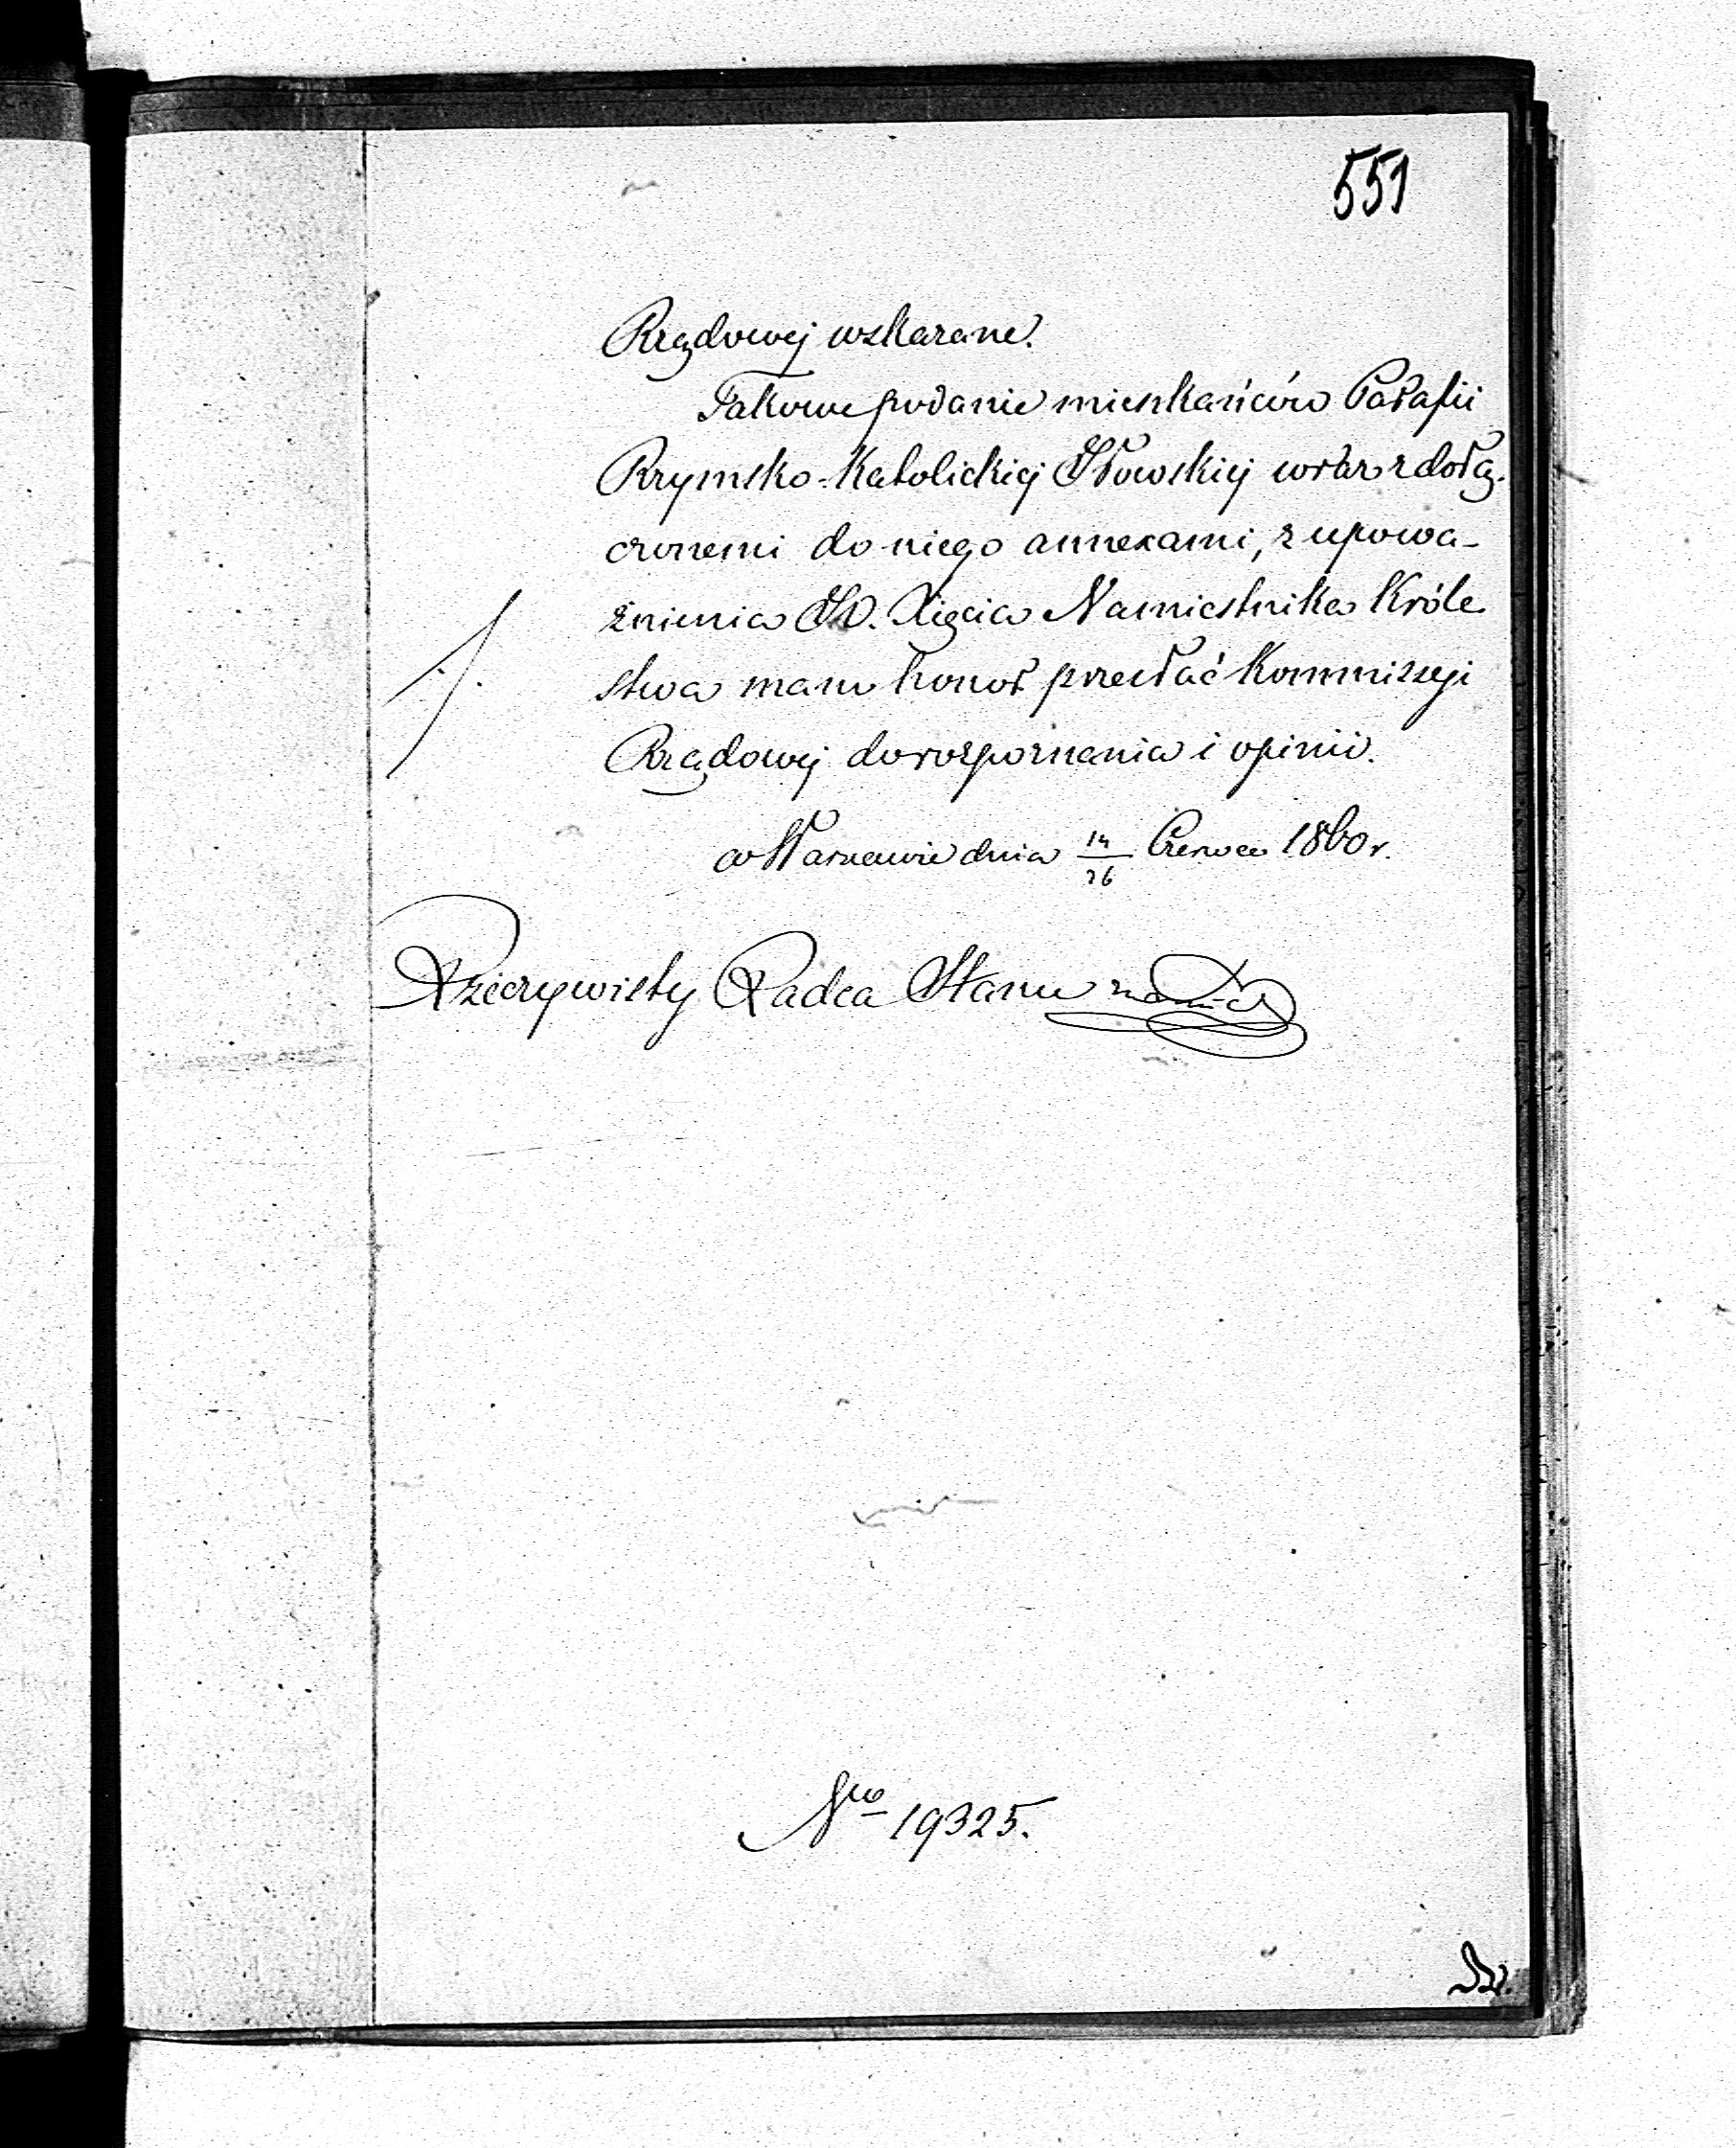 551
Rządowej wskazane.
Takowe podanie mieszkańców Parafii
Rzymsko-Katolickiej Iłowskiej wraz z dołą-
czonemi do niego annexami, z upowa-
żnienia JO. Xięcia Namiestnika Króle
stwa mam honor przesłać Kommissyi
Rządowej do rozpoznania i opinii.
w Warszawie dnia 14/26 Czerwca 1860 r.
Rzeczywisty Radca Stanu
Nro 19325.